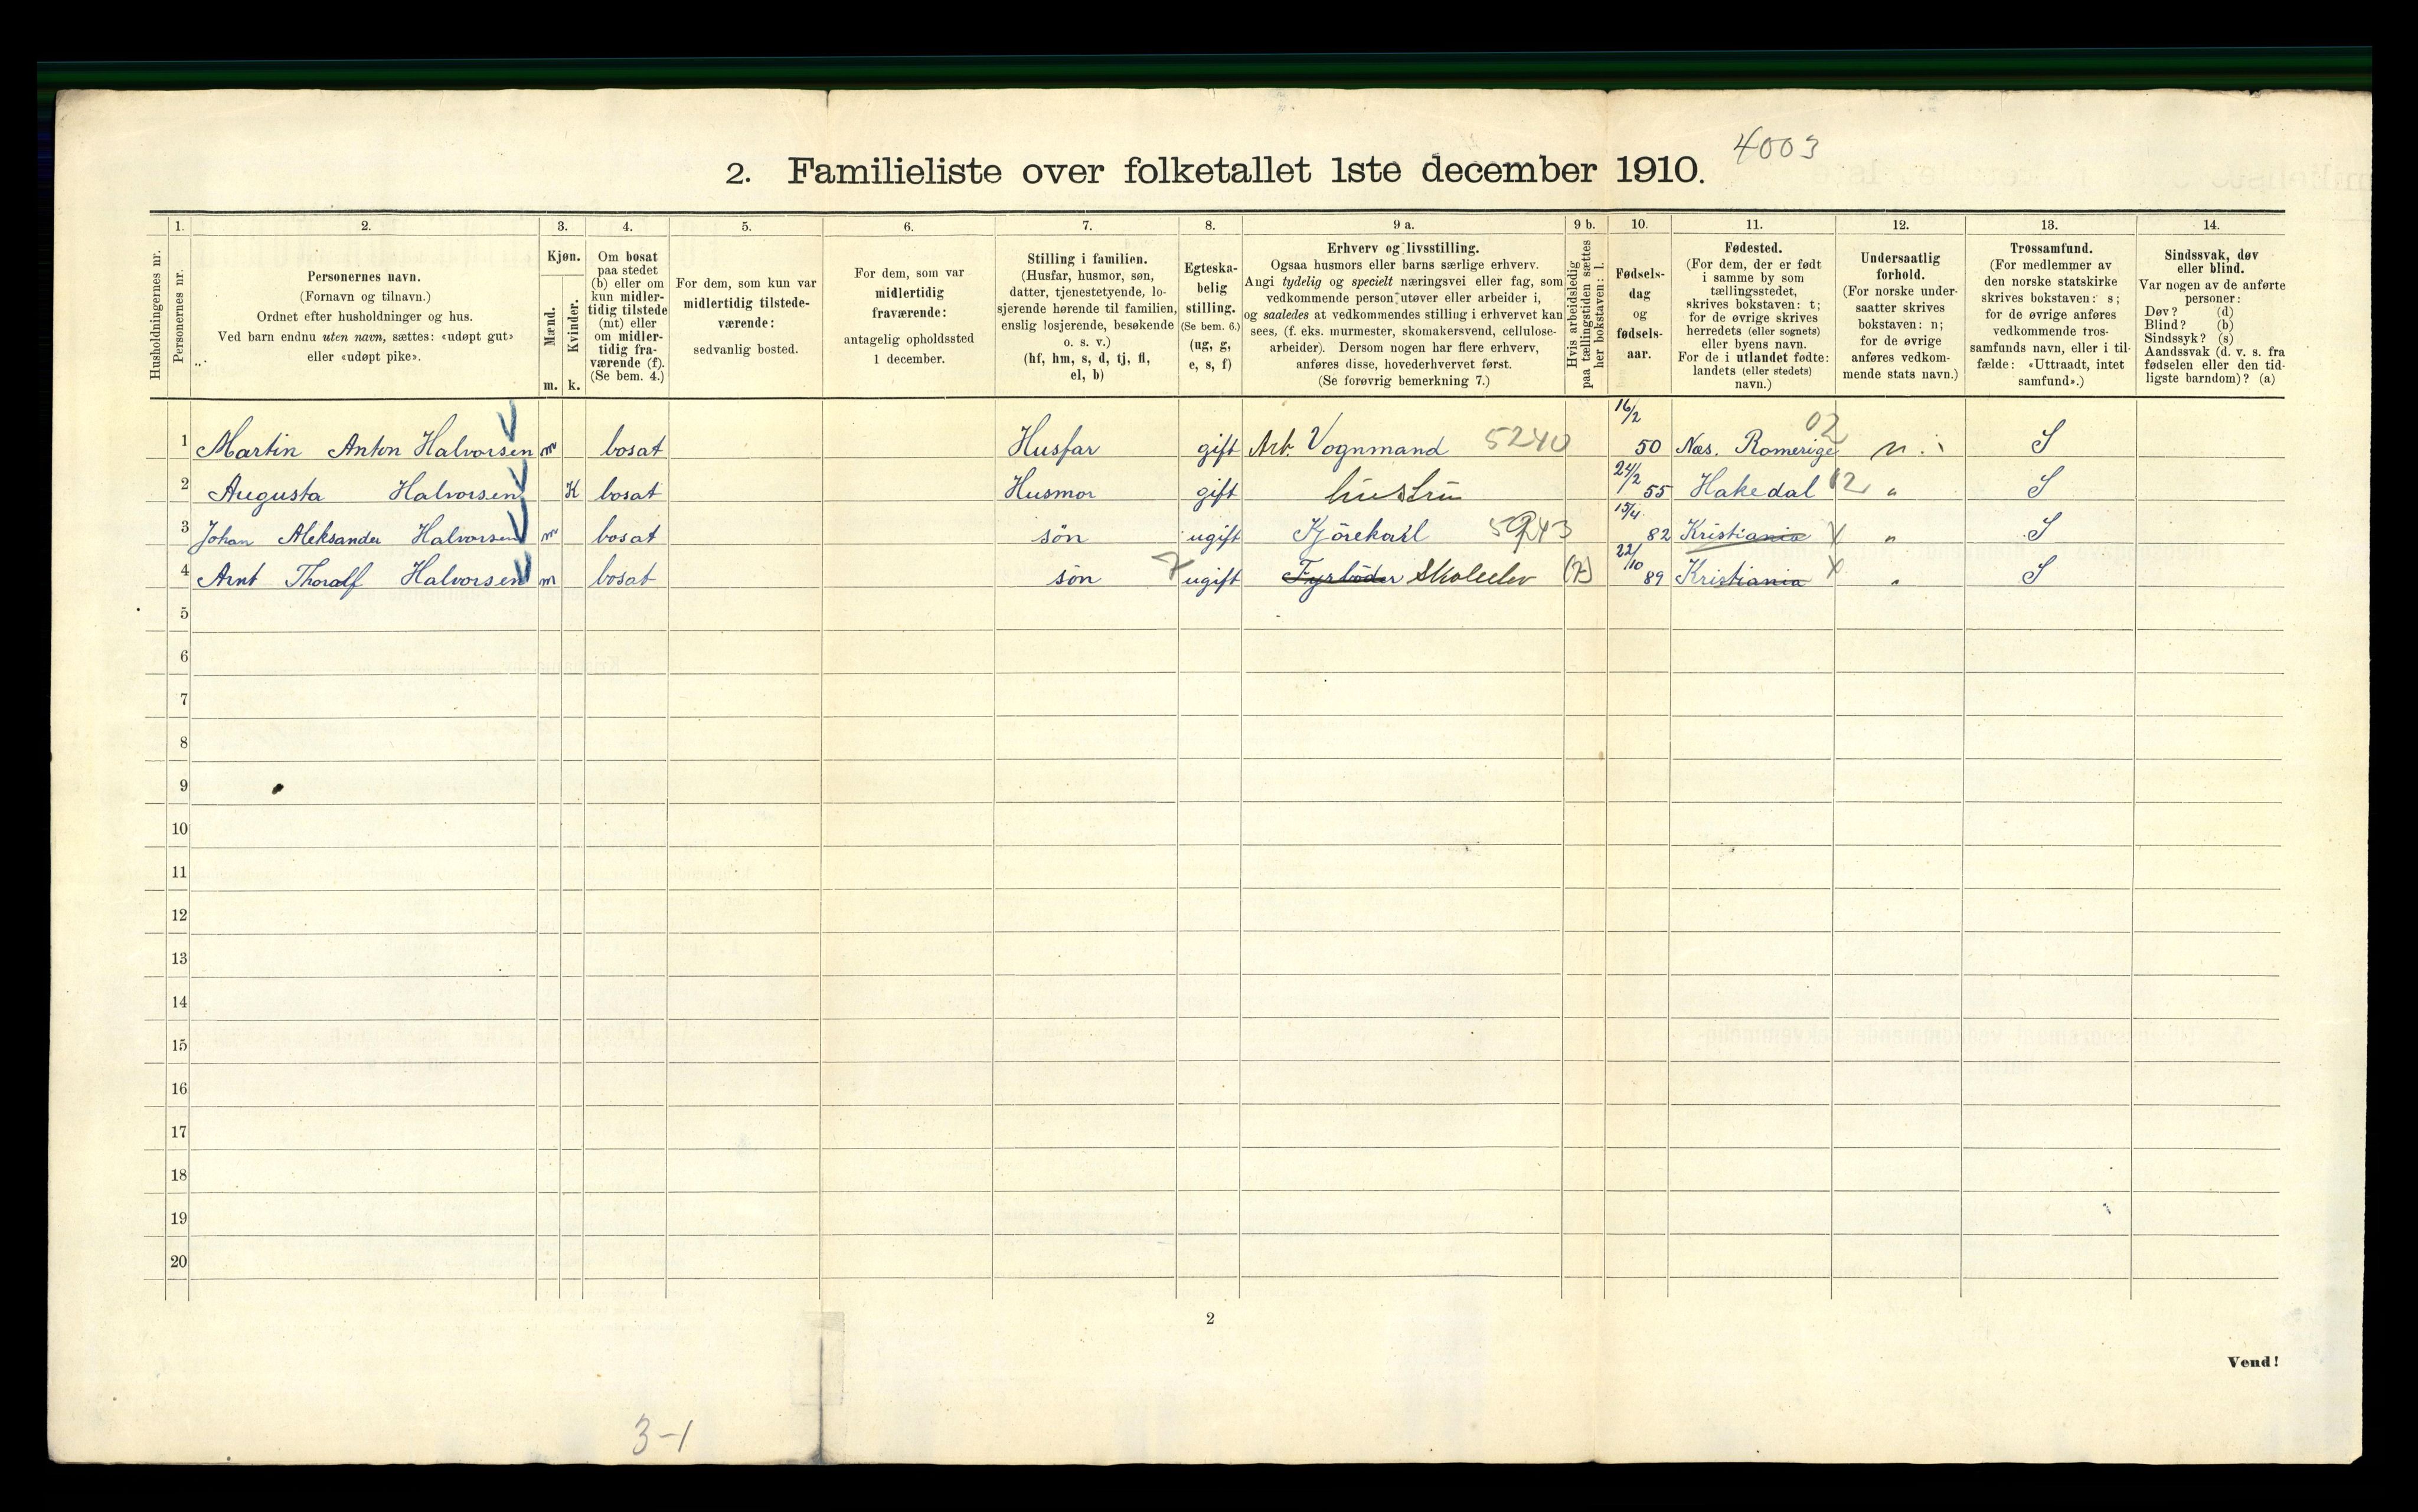 4003
2. Familieliste over folketallet 1ste december 1910.
Husholdningernes nr.
1.
Personernes nr.
2.
Personernes navn.
(Fornavn og tilnavn.)
Ordnet efter husholdninger og hus.
Ved barn endnu uten navn, sættes: «udøpt gut»
eller «udøpt pike».
3.
Kjøn.
Mænd.
Kvinder.
m. k.
4.
Om bosat
paa stedet
(b) eller om
kun midler-
tidig tilstede
(mt) eller
om midler-
tidig fra-
værende (f).
(Se bem. 4.)
5.
For dem, som kun var
midlertidig tilstede-
værende:
sedvanlig bosted.
6.
For dem, som var
midlertidig
fraværende:
antagelig opholdssted
1 december.
7.
Stilling i familien.
(Husfar, husmor, søn,
datter, tjenestetyende, lo-
sjerende hørende til familien,
enslig losjerende, besøkende
o. s. v.)
(hf, hm, s, d, tj, fl,
el, b)
8.
Egteska-
belig
stilling.
(Se bem. 6.)
(ug, g,
e, s, f)
9 a.
Erhverv og livsstilling.
Ogsaa husmors eller barns særlige erhverv.
Angi tydelig og specielt næringsvei eller fag, som
vedkommende person utøver eller arbeider i,
og saaledes at vedkommendes stilling i erhvervet kan
sees, (f. eks. murmester, skomakersvend, cellulose-
arbeider). Dersom nogen har flere erhverv,
anføres disse, hovederhvervet først.
(Se forøvrig bemerkning 7.)
9 b.
Hvis arbeidsledig
paa tællingstiden sættes
her bokstaven: l.
10.
Fødsels-
dag
og
fødsels-
aar.
11.
Fødested.
(For dem, der er født
i samme by som
tællingsstedet,
skrives bokstaven: t;
for de øvrige skrives
herredets (eller sognets)
eller byens navn.
For de i utlandet fødte:
landets (eller stedets)
navn.)
12.
Undersaatlig
forhold.
(For norske under-
saatter skrives
bokstaven: n;
for de øvrige
anføres vedkom-
mende stats navn.)
13.
Trossamfund.
(For medlemmer av
den norske statskirke
skrives bokstaven: s;
for de øvrige anføres
vedkommende tros-
samfunds navn, eller i til-
fælde: «Uttraadt, intet
samfund».)
14.
Sindssvak, døv
eller blind.
Var nogen av de anførte
personer:
Døv? (d)
Blind? (b)
Sindssyk? (s)
Aandssvak (d. v. s. fra
fødselen eller den tid-
ligste barndom)? (a)
1 Martin Anton Halvorsen m bosat Husfar gift Arb. Vognmand 5240 16/2 50 Næs. Romerige 02 n. S
2 Augusta Halvorsen K bosat Husmor gift hustru 24/2 55 Hakedal 12 „ S
3 Johan Aleksander Halvorsen m bosat søn ugift Kjørekarl 15/4 82 Kristiania X „ S
4 Arnt Thoralf Halvorsen m bosat søn 7 ugift Fyrbøder Skoleelev (7) 22/10 89 Kristiania X „ S
5
6
7
8
9
10
11
12
13
14
15
16
17
18
19
20
2
Vend!
3-1